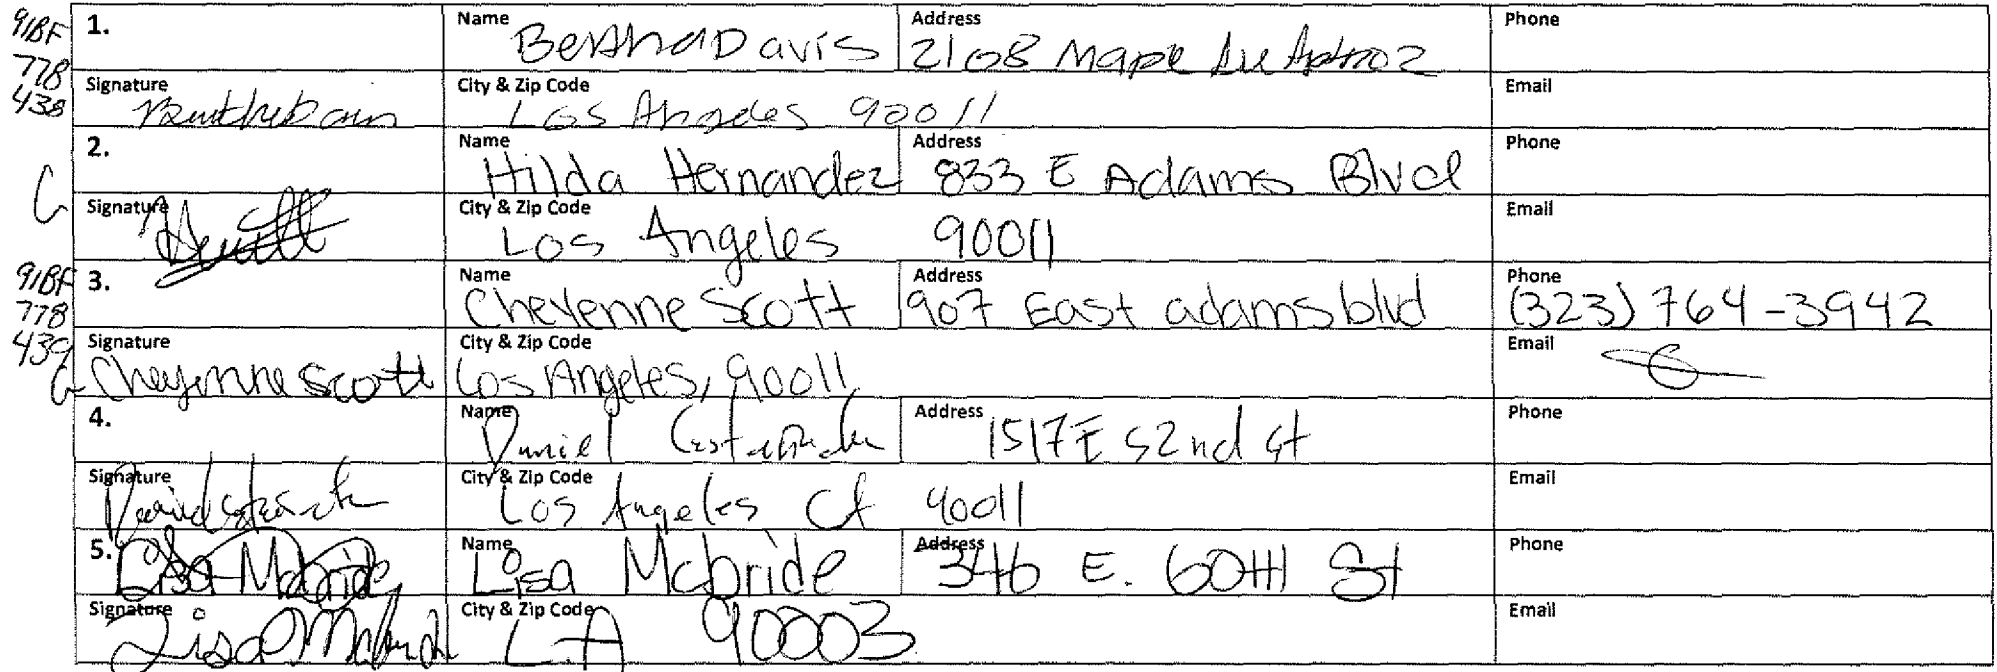 91BF 1. Name Bertha Davis Address 2108 Maple Ave Apt 102 Phone
778
438 Signature City & Zip Code Los Angeles 90011 Email
2. Name Hilda Hernandez Address 833 E Adams Blvd Phone
Signature City & Zip Code Los Angeles 90011 Email
91BF 3. Name Cheyenne Scott Address 907 East adams blvd Phone (323) 764-3942
778
439 Signature Cheyenne Scott City & Zip Code Los Angeles, 90011 Email
4. Name Daniel Address 1517 E 52nd St Phone
Signature City & Zip Code Los Angeles CA 90011 Email
5. Lisa Mcbride Name Lisa Mcbride Address 346 E. 60TH St Phone
Signature Lisa City & Zip Code L.A 90003 Email